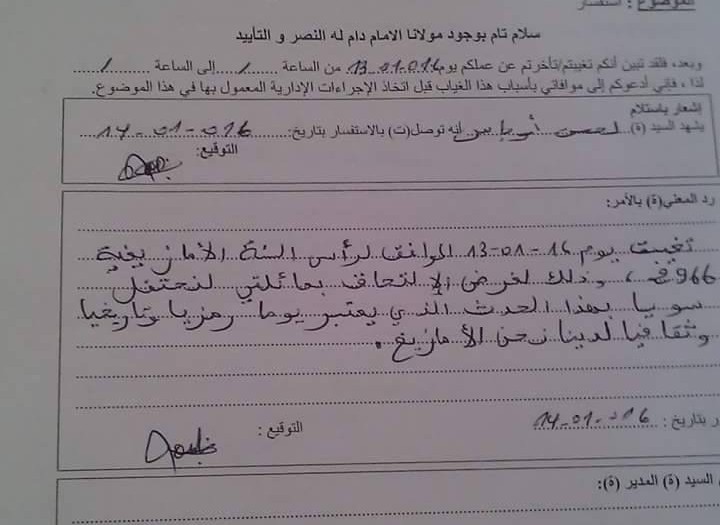 الموضوع : استفسار
سلام تام بوجود مولانا الامام دام له النصر و التأييد
وبعد، فلقد تبين أنكم تغيبتم/تأخرتم عن عملكم يوم 13.01.016 من الساعة ..../.... إلى الساعة ..../....
لذا ، فإني أدعوكم إلى موافاتي بأسباب هذا الغياب قبل اتخاذ الإجراءات الإدارية المعمول بها في هذا الموضوع.
إشعار باستلام
يشهد السيد (ة) لحسن أنه توصل(ت) بالاستفسار بتاريخ: 14-01-016
التوقيع:
رد المعني(ة) بالأمر:
تغيبت يوم 16-01-13 الموافق لرأس السنة الأمازيغية
2966 ، وذلك لغرض الالتحاق بعائلتي لنحتفل
سويا بهذا الحدث الذي يعتبر يوما رمزيا وتاريخيا
وثقافيا لدينا نحن الأمازيغ .
بتاريخ : 14-01-016 التوقيع :
السيد (ة) المدير (ة):